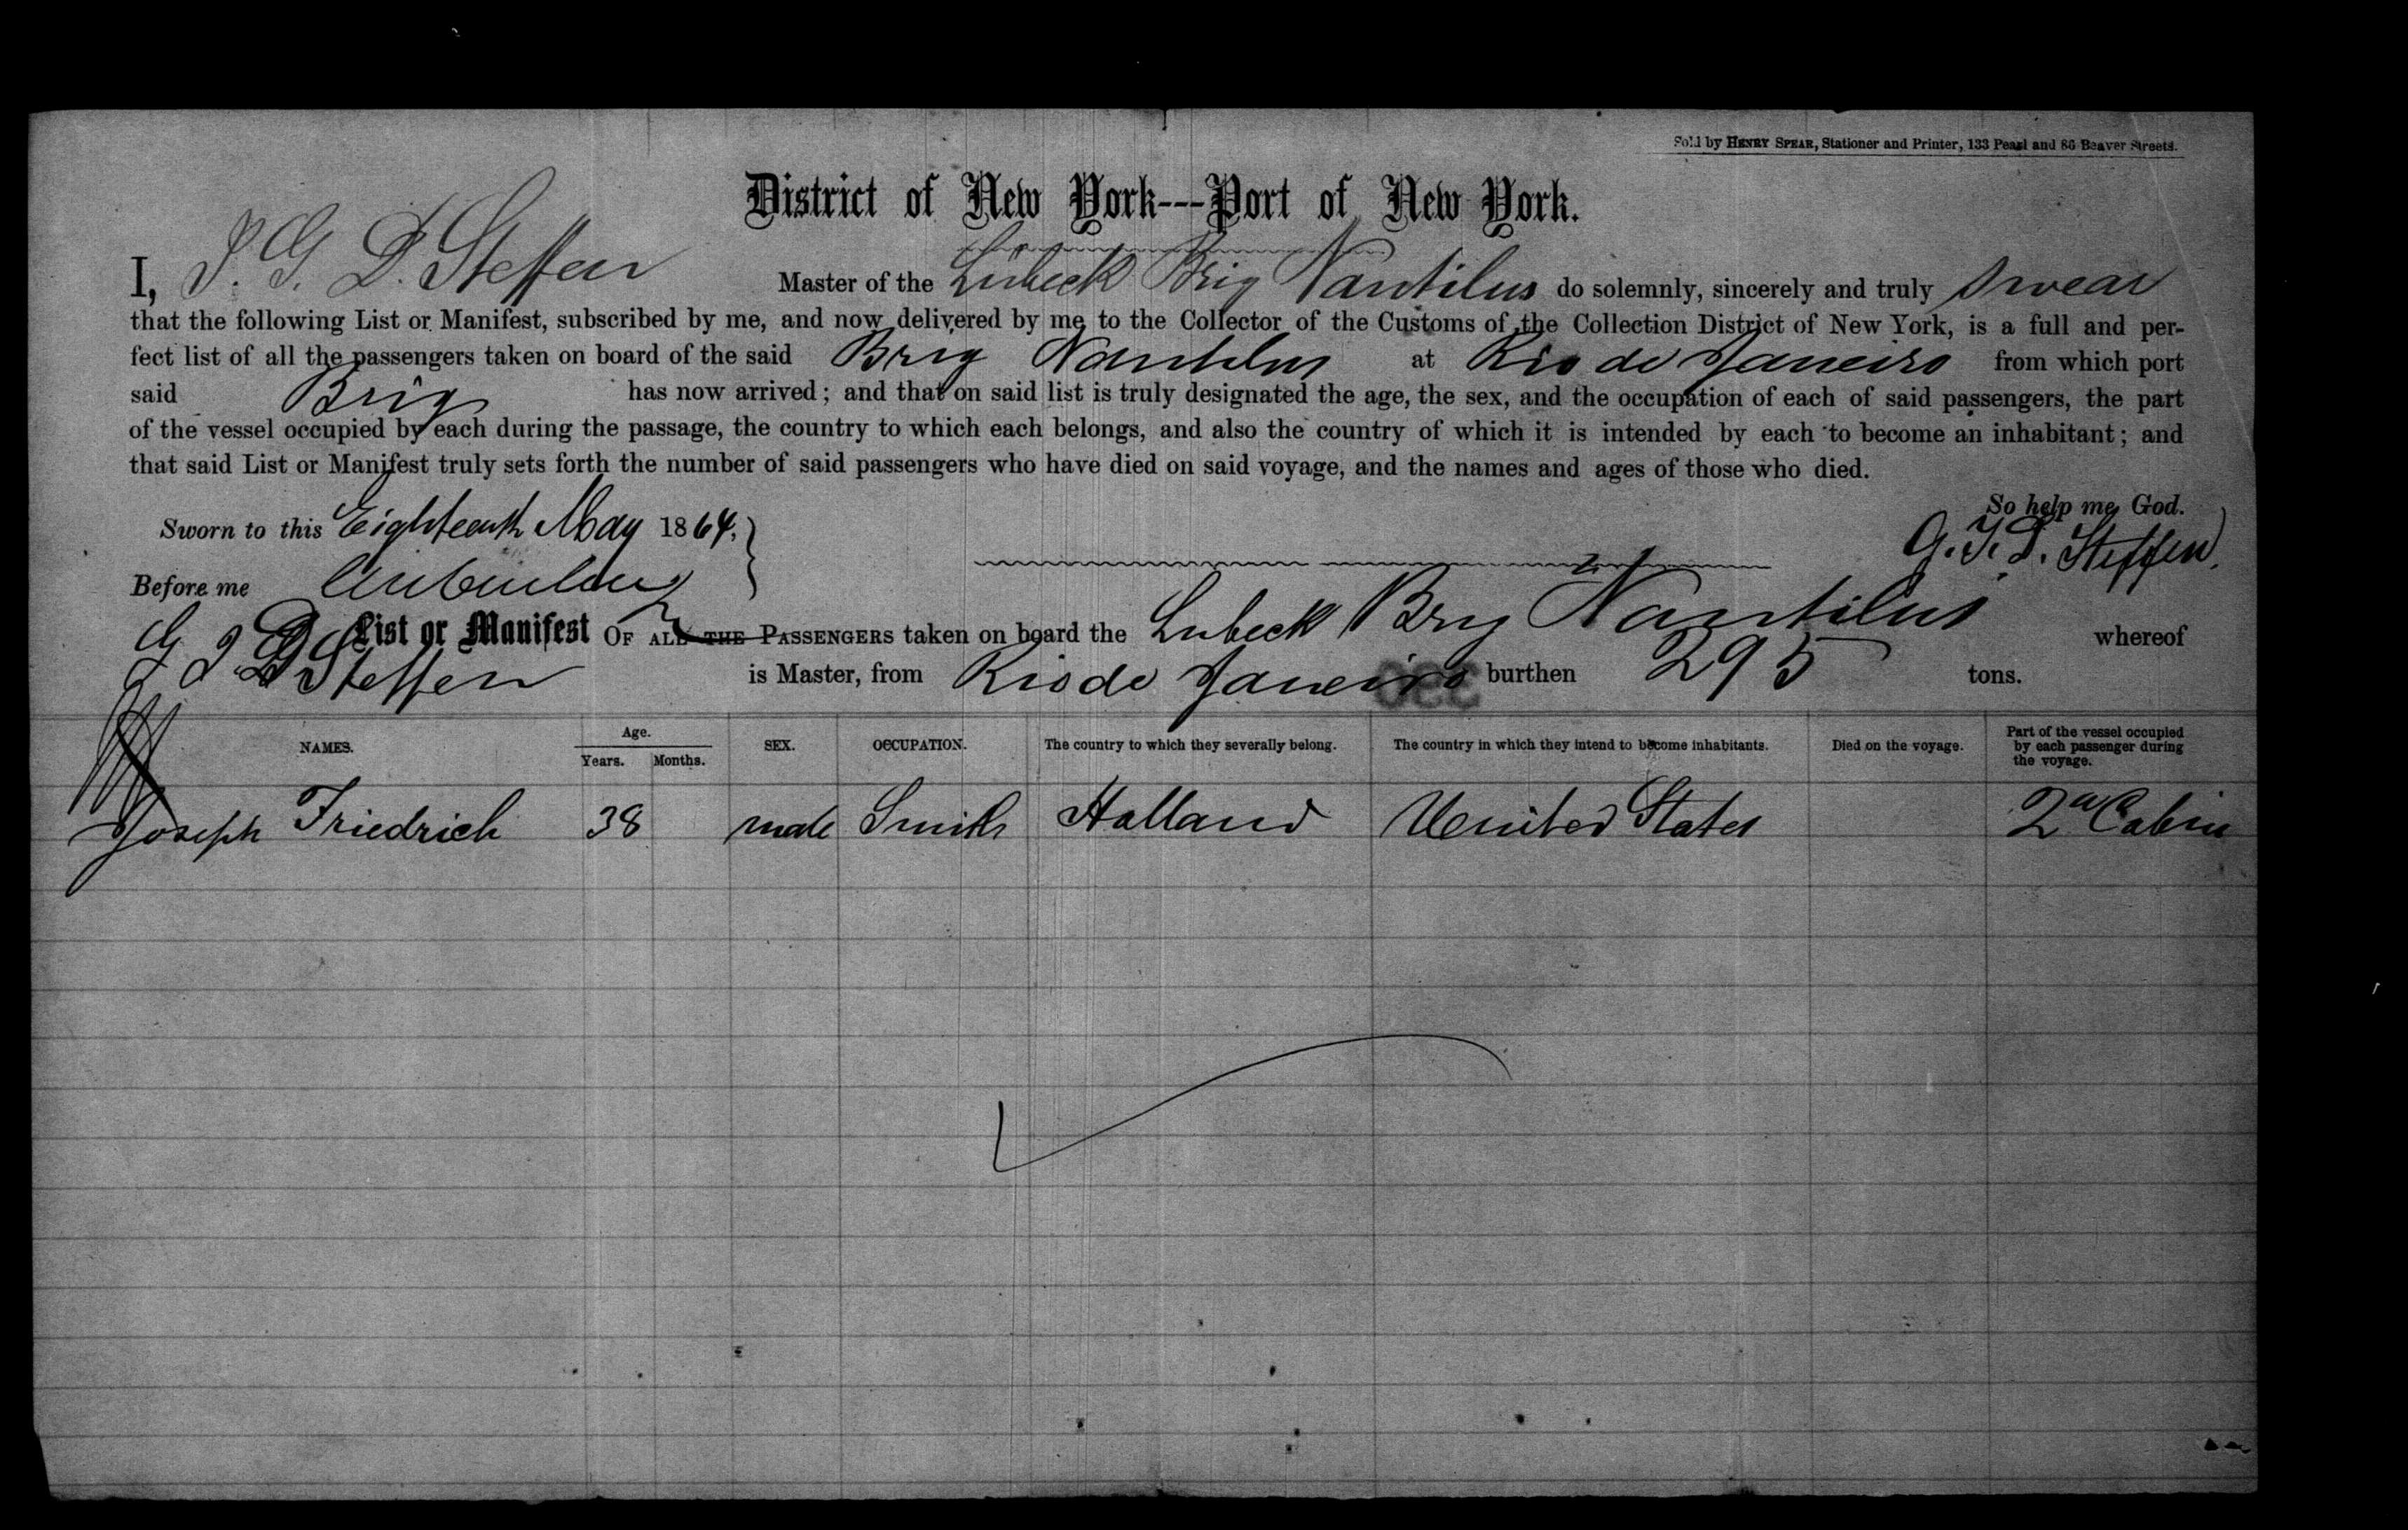 Sold by HENRY SPEAR, Stationer and Printer, 133 Pearl and 86 Beaver Streets.
District of New York---Port of New York.
I, J. G. D. Steffen Master of the Lübeck Brig Nautilus do solemnly, sincerely and truly swear
that the following List or Manifest, subscribed by me, and now delivered by me to the Collector of the Customs of the Collection District of New York, is a full and per-
fect list of all the passengers taken on board of the said Brig Nautilus at Rio de Janeiro from which port
said Brig has now arrived; and that on said list is truly designated the age, the sex, and the occupation of each of said passengers, the part
of the vessel occupied by each during the passage, the country to which each belongs, and also the country of which it is intended by each to become an inhabitant; and
that said List or Manifest truly sets forth the number of said passengers who have died on said voyage, and the names and ages of those who died.
So help me God.
Sworn to this Eighteenth May 1864.
G. J. D. Steffen
Before me
List or Manifest OF ALL THE PASSENGERS taken on board the Lubeck Brig Nautilus whereof
G J D Steffen is Master, from Rio de Janeiro burthen 295 tons.
NAMES. Age. Years. Months. SEX. OCCUPATION. The country to which they severally belong. The country in which they intend to become inhabitants. Died on the voyage. Part of the vessel occupied by each passenger during the voyage.
Joseph Friedrich 38 male Smith Holland Uenited States 2 Cabin